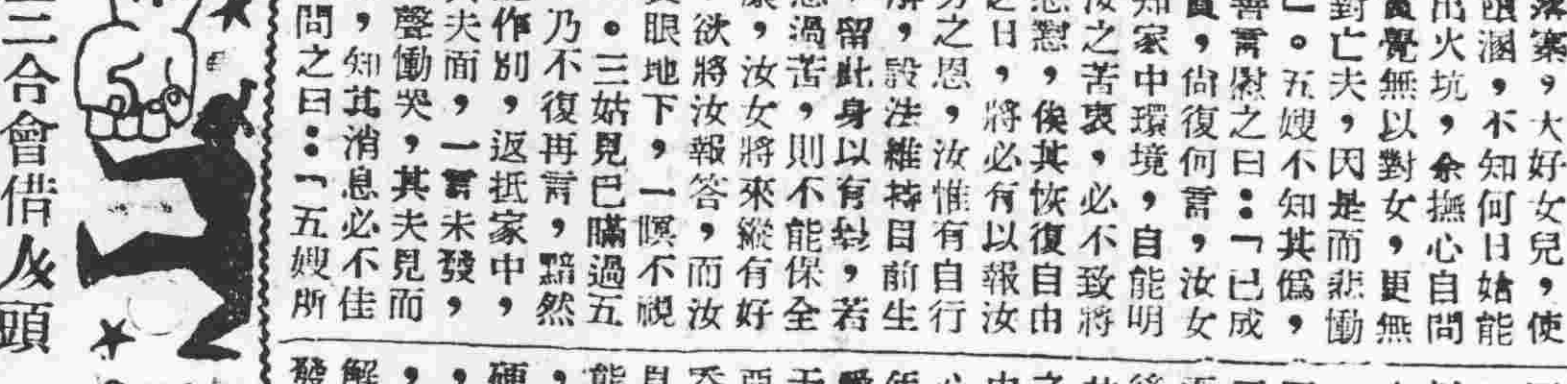 寨，大好女兒，使
溷，不知何日始能
出火坑，余撫心自問
實覺無以對女，更無
對亡夫，因是而悲慟
。五嫂不知其僞，
善言慰之曰：「已成
實，尙復何言，汝女
知家中環境，自能明
汝之苦衷，必不致將
怨懟，俟其恢復自由
之日，將必有以報汝
勞之恩，汝惟有自行
解，設法維持目前生
，留此身以有，若
過苦，則不能保全
康，汝女將來縱有好
欲將汝報答，而汝
眼地下，一瞑不視
。三姑見已瞞過五
乃不復再言，黯然
作別，返抵家中，
夫面，一言未發，
聲慟哭，其夫見而
，知其消息必不佳
問之曰：「五嫂所
三合會借人頭